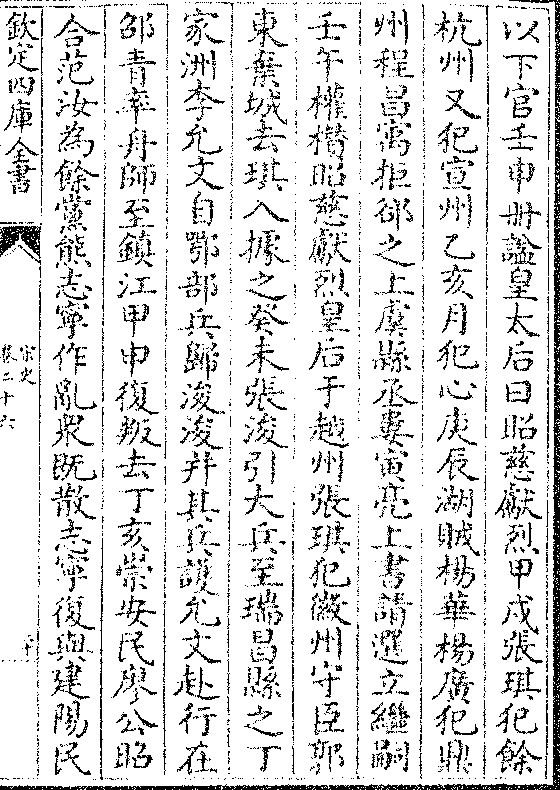 以下官壬申册諡皇太后曰昭慈獻烈甲戌張琪犯餘
杭州又犯宣州乙亥月犯心庚辰湖賊楊華楊廣犯鼎
州程昌寓拒卻之上虞縣丞婁寅亮上書請選立繼嗣
壬午權攢昭慈獻烈皇后于越州張琪犯徽州守臣郭
東棄城去琪入據之癸未張浚引大兵至瑞昌縣之丁
家洲李允文自鄂部兵歸浚浚并其兵護允文赴行在
邵青率舟師至鎮江甲申復叛去丁亥崇安民廖公昭
合范汝為餘黨熊志寧作亂衆既散志寧復與建陽民
欽定四庫全書
宋史
卷二十六